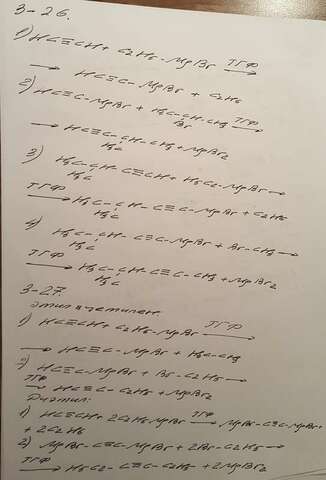 3-26.
1) HC≡CH + C2H5-MgBr ТГФ→
→ HC≡C-MgBr + C2H6
2) HC≡C-MgBr + H3C-CH-CH3 ТГФ→
Br
→ HC≡C-CH-CH3 + MgBr2
H3C
3) H3C-CH-C≡CH + H5C2-MgBr →
H3C
ТГФ→ H3C-CH-C≡C-MgBr + C2H6
H3C
4) H3C-CH-C≡C-MgBr + Br-CH3 →
H3C
ТГФ→ H3C-CH-C≡C-CH3 + MgBr2
H3C
3-27.
этилацетилен
1) HC≡CH + C2H5-MgBr ТГФ→
→ HC≡C-MgBr + H3C-CH3
2) HC≡C-MgBr + Br-C2H5 →
ТГФ→ HC≡C-C2H5 + MgBr2
Диэтил:
1) HC≡CH + 2C2H5MgBr ТГФ→ MgBr-C≡C-MgBr
+ 2C2H6
2) MgBr-C≡C-MgBr + 2Br-C2H5 →
ТГФ→ H5C2-C≡C-C2H5 + 2MgBr2